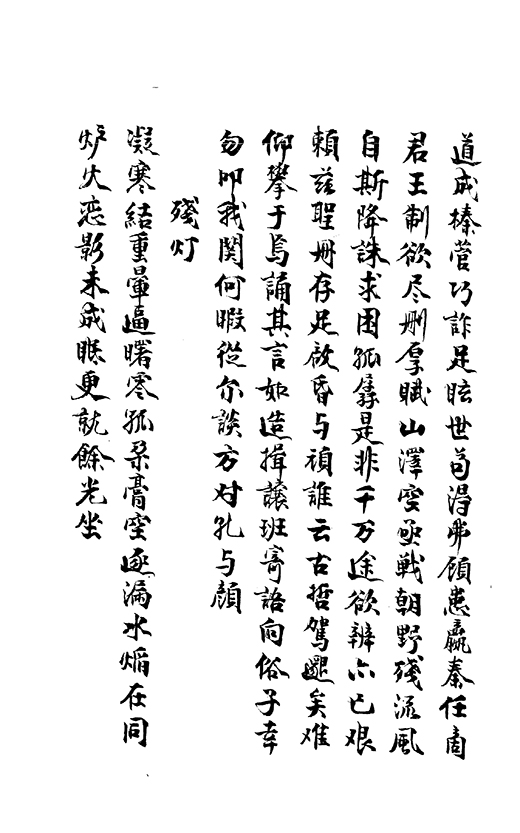 道成榛菅巧詐足眩世苟得弗顧患嬴秦任商
君王制欲尽刪厚賦山澤空亟战朝野殘流風
自斯降誅求困孤孱是非千万途欲辨亦已艰
頼兹聖册存足啟昏与頑誰云古哲駕邈矣难
仰攀于焉誦其言如造揖讓班寄語向俗子幸
勿叩我関何暇從尔談方对孔与顔
殘灯
凝寒結重暈逼曙寒孤朵膏空逐漏水焰在同
炉火恋影未成眠更就餘光坐